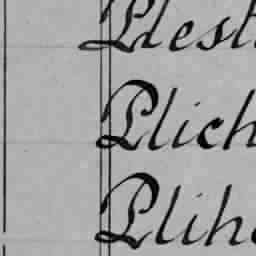 Plest
Plich
Plih